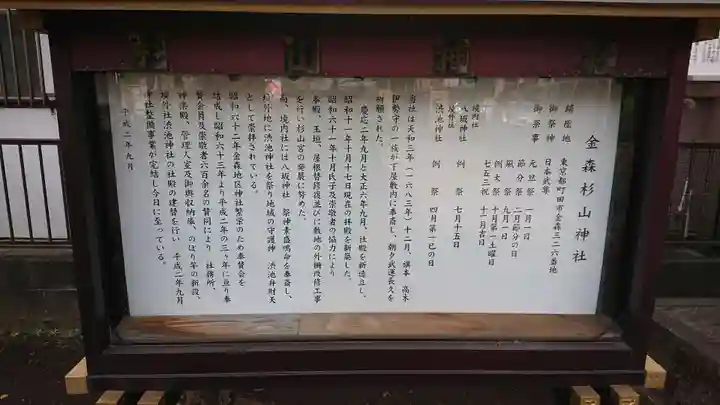 金森杉山神社
鎮座地 東京都町田市金森三二六番地
御祭神 日本武尊
御祭事 元旦祭 一月一日
節分祭 二月節分の日
祭 九月一日
例大祭 十月第一土曜日
七五三祝 十一月吉日
境内社
八坂神社 例祭 七月十五日
境外社
渋池神社 例祭 四月第一巳の日
当社は天和三年(一六八三年)十一月、旗本 高木
伊勢守の一族が丁屋敷内に奉斎し、朝夕武運長久を
祈願された。
慶応二年九月と大正六年九月、社殿を新造立し、
昭和十一年十月十七日現在の拝殿を新築した。
昭和六十一年十月氏子及崇敬者の協力により
本殿、玉垣、屋根替修復並びに敷地の外柵改修工事
を行い杉山宮の発展に努めた。
尚、境内社には八坂神社 祭神素盛鳴命を奉斎し、
境外地に渋池神社を祭り地域の守護神 渋池弁財天
として崇拝されている。
昭和六十二年金森地区神社繁栄のため奉賛会を
結成し昭和六十三年より平成二年の三ヶ年に亘り奉
賛会員及崇敬者六百余名の賛同により、社務所、
神楽殿、管理人室及御輿収納庫、のぼり竿の新設、
境外社渋池神社の社殿の建替を行い 平成二年九月
神社整備事業が完結し今日に至っている。
平成二年九月